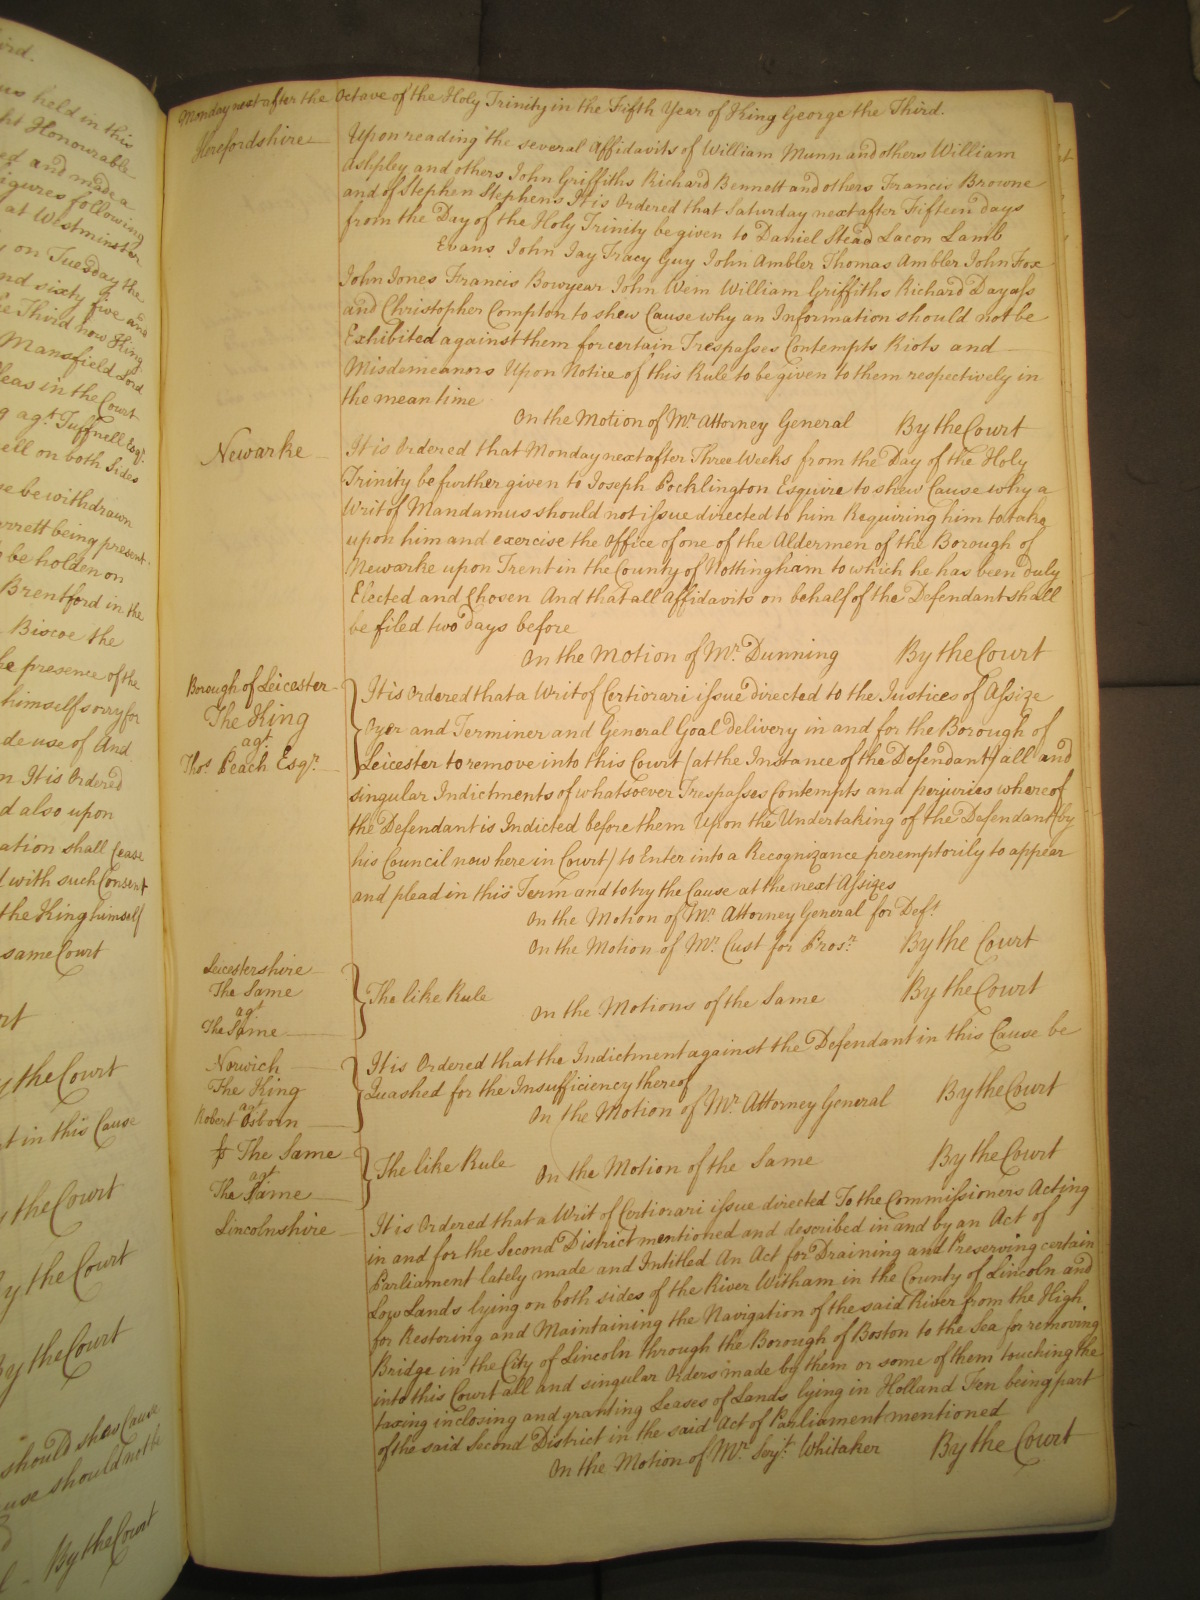 ird.
us held in this
ht Honourable
ed and made a
igures following
at Westminster
on Tuesday the
nd sixty five and
e Third now King
Mansfield Lord
leas in the Court
g agt. Tuffnell Esqr.
ell on both Sides
be withdrawn
rrett being present
be holden on
Brentford in the
Biscoe the
he presence of the
himself sorry for
de use of And
n It is Ordered
d also upon
ation shall Cease
with such Consent
the King himself
same Court
y the Court
t in this Cause
y the Court
y the Court
By the Court
should shew Cause
use should not be
By the Court
Monday next after the Octave of the Holy Trinity in the Fifth Year of King George the Third.
Herefordshire
Upon reading the several Affidavits of William Munn and others William
Ashpley and others John Griffiths Richard Bennett and others Francis Browne
and of Stephen Stephens It is Ordered that Saturday next after Fifteen days
from the Day of the Holy Trinity be given to Daniel Stead Lacon Lamb
Evans John Jay Tracy Guy John Ambler Thomas Ambler John Fox
John Jones Francis Bowyear John Wem William Griffiths Richard Dayass
and Christopher Compton to shew Cause why an Information should not be
Exhibited against them for certain Trespasses Contempts Riots and
Misdemeanors Upon Notice of this Rule to be given to them respectively in
the mean time
On the Motion of Mr. Attorney General By the Court
Newarke
It is Ordered that Monday next after Three Weeks from the Day of the Holy
Trinity be further given to Joseph Pocklington Esquire to shew Cause why a
Writ of Mandamus should not issue directed to him Requiring him to take
upon him and exercise the Office of one of the Aldermen of the Borough of
Newarke upon Trent in the County of Nottingham to which he has been duly
Elected and Chosen And that all Affidavits on behalf of the Defendant shall
be filed two days before
On the Motion of Mr. Dunning By the Court
Borough of Leicester
The King
agt.
Thos. Peach Esqr.
It is Ordered that a Writ of Certiorari issue directed to the Justices of Assize
Oyer and Terminer and General Goal delivery in and for the Borough of
Leicester to remove into this Court (at the Instance of the Defendant) all and
singular Indictments of whatsoever Trespasses Contempts and perjuries whereof
the Defendant is Indicted before them Upon the Undertaking of the Defendant (by
his Council now here in Court) to Enter into a Recognizance peremptorily to appear
and plead in this Term and to try the Cause at the next Assizes
On the Motion of Mr. Attorney General for Deft.
On the Motion of Mr. Cust for Prosr. By the Court
Leicestershire
The Same
agt.
The Same
The like Rule
On the Motions of the Same By the Court
Norwich
The King
agt.
Robert Osborn
It is Ordered that the Indictment against the Defendant in this Cause be
Quashed for the Insufficiency thereof
On the Motion of Mr. Attorney General By the Court
The Same
agt.
The Same
The like Rule On the Motion of the Same By the Court
Lincolnshire
It is Ordered that a Writ of Certiorari issue directed To the Commissioners Acting
in and for the Second District mentioned and described in and by an Act of
Parliament lately made and Intitled An Act for Draining and Preserving certain
Low Lands lying on both sides of the River Witham in the County of Lincoln and
for Restoring and Maintaining the Navigation of the said River from the High
Bridge in the City of Lincoln through the Borough of Boston to the Sea for removing
into this Court all and singular Orders made by them or some of them touching the
taxing inclosing and granting Leases of Lands lying in Holland Fen being part
of the said Second District in the said Act of Parliament mentioned
On the Motion of Mr. Serjt. Whitaker By the Court